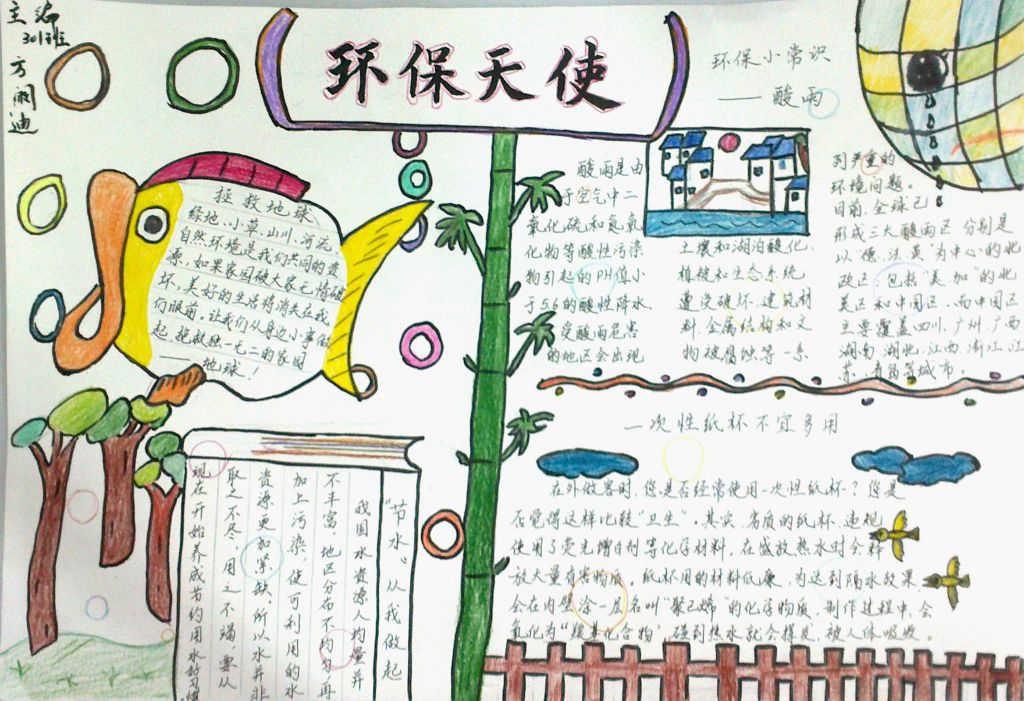 主编
301班
方阚迪
环保天使
环保小常识
——酸雨
拯救地球
绿地、小草、山川、河流
自然环境是我们共同的资
源，如果家园破大家无情破
坏，美好的生活将消失在我
们眼前。让我们从身边小事做
起，拯救独一无二的家园
——地球！
酸雨是由
于空气中二
氧化硫和氮氧
化物等酸性污染
物引起的PH值小
于5.6的酸性降水
受酸雨危害
的地区会出现
土壤和湖泊酸化，
植被和生态系统
遭受破坏，建筑材
料、金属结构和文
物被腐蚀等一系
列严重的
环境问题。
目前，全球已
形成三大酸雨区，分别是
以“德、法、英”为中心的北
欧区；包括“美、加”的北
美区和中国区。而中国区
主要覆盖四川、广州、广西
湖南、湖北、江西、浙江、江
苏、青岛等城市。
一次性纸杯不宜多用
在外做客时，您是否经常使用一次性纸杯？您是
否觉得这样比较“卫生”。其实，劣质的纸杯，违规
使用了荧光增白剂等化学材料，在盛放热水时会释
放大量有害物质。纸杯用的材料低廉，为达到隔水效果，
会在内壁涂一层名叫“聚乙烯”的化学物质，制作过程中，会
氧化为“羰基化合物”，碰到热水就会挥发，被人体吸收。
“节水”从我做起
我国水资源人均量并
不丰富，地区分布不均匀，再
加上污染，使可利用的水
资源更加紧缺。所以水并非
取之不尽，用之不竭，要从
现在开始养成节约用水的习惯